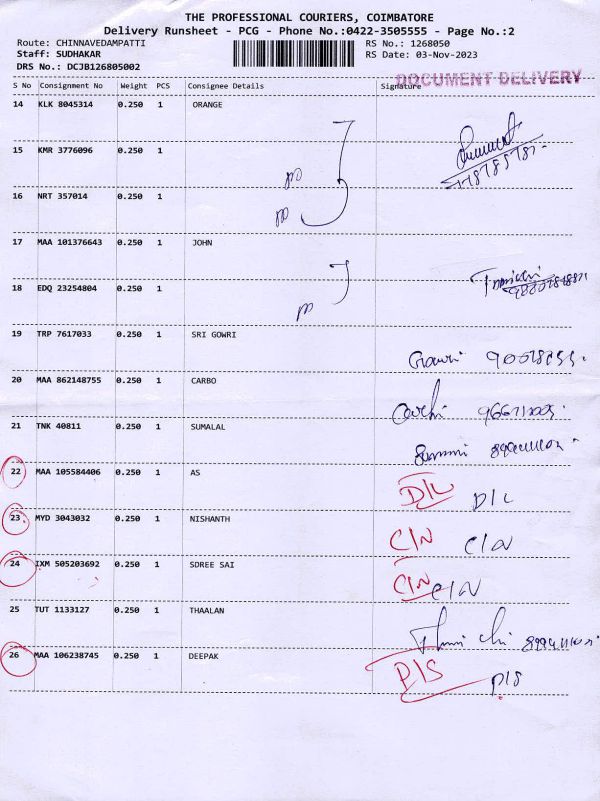 THE PROFESSIONAL COURIERS, COIMBATORE
Delivery Runsheet - PCG - Phone No.:0422-3505555 - Page No.:2
Route: CHINNAVEDAMPATTI RS No.: 1268050
Staff: SUDHAKAR RS Date: 03-Nov-2023
DRS No.: DCJB126805002
DOCUMENT DELIVERY
S No Consignment No Weight PCS Consignee Details Signature
14 KLK 8045314 0.250 1 ORANGE
15 KMR 3776096 0.250 1
16 NRT 357014 0.250 1
17 MAA 101376643 0.250 1 JOHN
18 EDQ 23254804 0.250 1
19 TRP 7617033 0.250 1 SRI GOWRI
Gowri
20 MAA 862148755 0.250 1 CARBO
21 TNK 40811 0.250 1 SUMALAL
22 MAA 105584406 0.250 1 AS
D/L D/L
23 MYD 3043032 0.250 1 NISHANTH
C/N C/N
24 IXM 505203692 0.250 1 SDREE SAI
C/N C/N
25 TUT 1133127 0.250 1 THAALAN
26 MAA 106238745 0.250 1 DEEPAK
P/S P/S